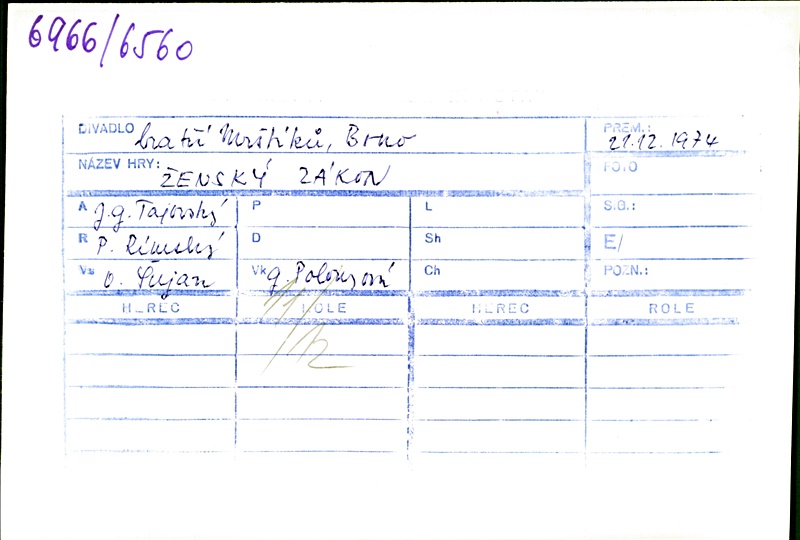 6966/6560
DIVADLO bratří Mrštíků, Brno PREM.: 21.12.1974
NÁZEV HRY: ŽENSKÝ ZÁKON FOTO
A J.G. Tajovský P L S.G.:
R P. Rímský D Sh E/
Vs O. Šujan Vk G. Polónyová Ch POZN.:
HEREC ROLE HEREC ROLE